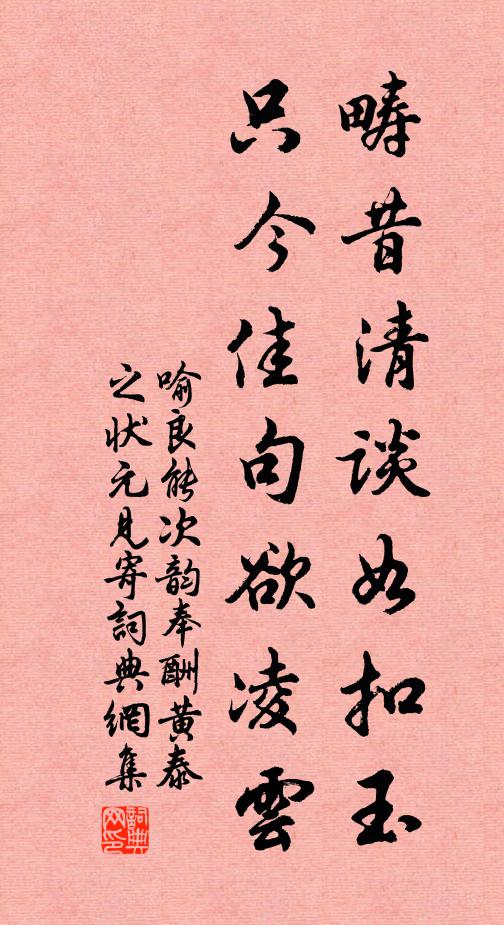 畴昔清談如扣玉
只今佳句欲凌雲
喻良能次韵奉酬黄泰
之状元見寄詞典網集
詞典
网印